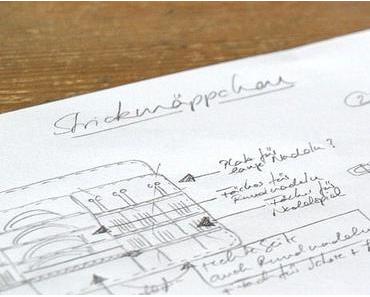 Strickmäppchen
2
Platz für
lange Nadeln?
Fächer für
Rundnadeln
Fächer für
Nadelspiel
rechte Seite
auch Rundnadeln